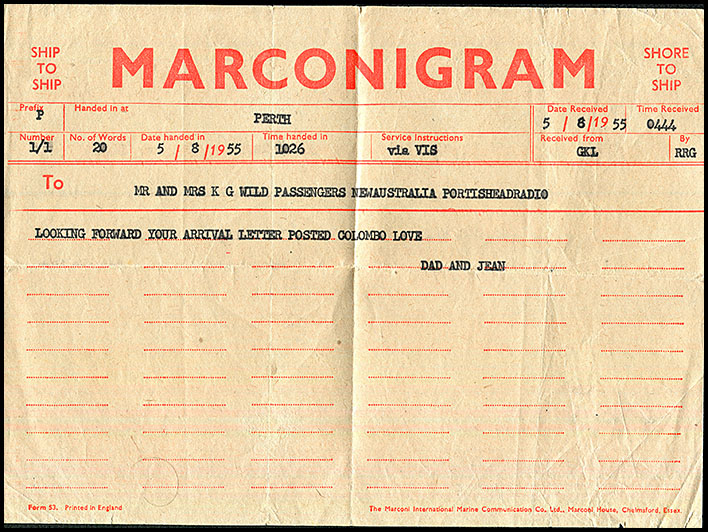 SHIP TO SHIP
MARCONIGRAM
SHORE TO SHIP
Prefix P
Handed in at PERTH
Date Received 5 / 8 / 1955
Time Received 0444
Number 1/1
No. of Words 20
Date handed in 5 / 8 / 1955
Time handed in 1026
Service Instructions via VIS
Received from GKL
By RRG
To MR AND MRS K G WILD PASSENGERS NEWAUSTRALIA PORTISHEADRADIO
LOOKING FORWARD YOUR ARRIVAL LETTER POSTED COLOMBO LOVE
DAD AND JEAN
Form 53. Printed in England
The Marconi International Marine Communication Co. Ltd., Marconi House, Chelmsford, Essex.